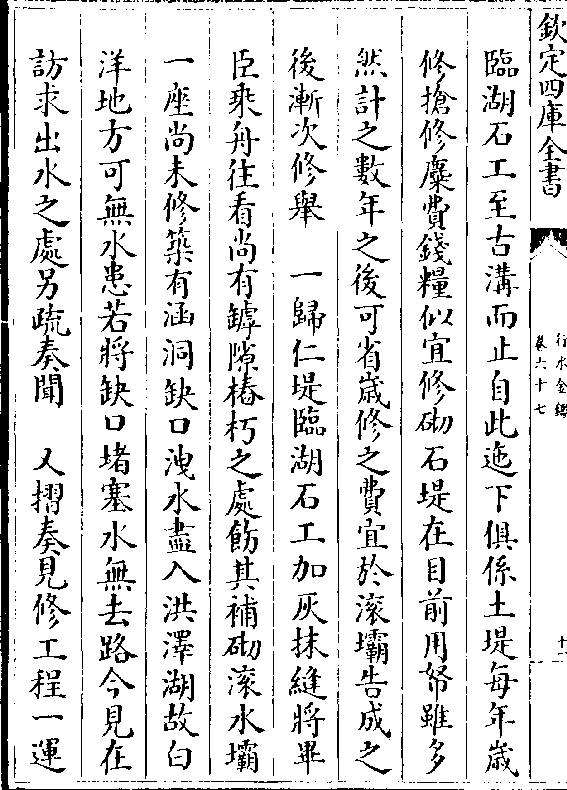 欽定四庫全書
行水金鑑
卷六十七
十
臨湖石工至古溝而止自此迤下俱係土堤每年歲
修搶修糜費錢糧似宜修砌石堤在目前用帑雖多
然計之數年之後可省歲修之費宜於滚壩告成之
後漸次修舉　一歸仁堤臨湖石工加灰抹縫將畢
臣乘舟往看尚有罅隙樁朽之處飭其補砌滚水壩
一座尚未修築有涵洞缺口洩水盡入洪澤湖故白
洋地方可無水患若將缺口堵塞水無去路今見在
訪求出水之處另疏奏聞　又摺奏見修工程一運